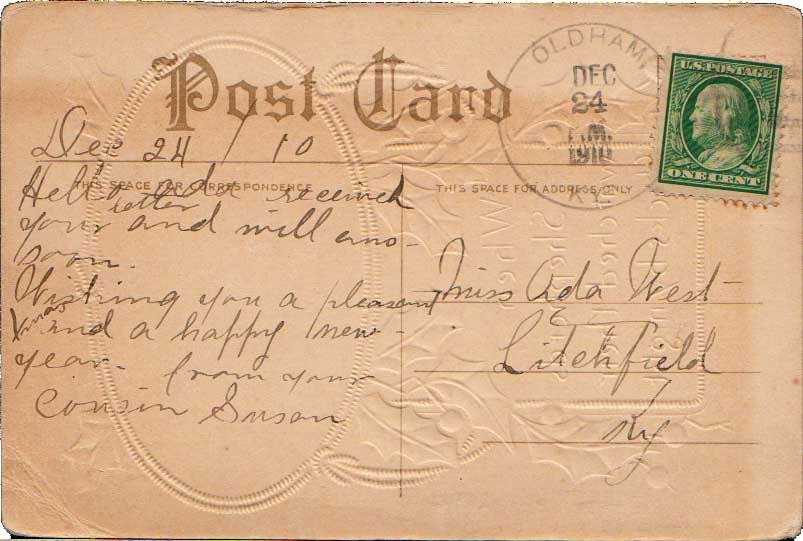 Post Card
Dec 24 / 10
THIS SPACE FOR CORRESPONDENCE
Hello Ada received
your letter and will ans-
soon.
Wishing you a pleasant
Xmas and a happy new-
year. from your
Cousin Susan
THIS SPACE FOR ADDRESS ONLY
Miss Ada West
Litchfield
Ky
OLDHAM
DEC
24
1910
KY.
U.S. POSTAGE
ONE CENT